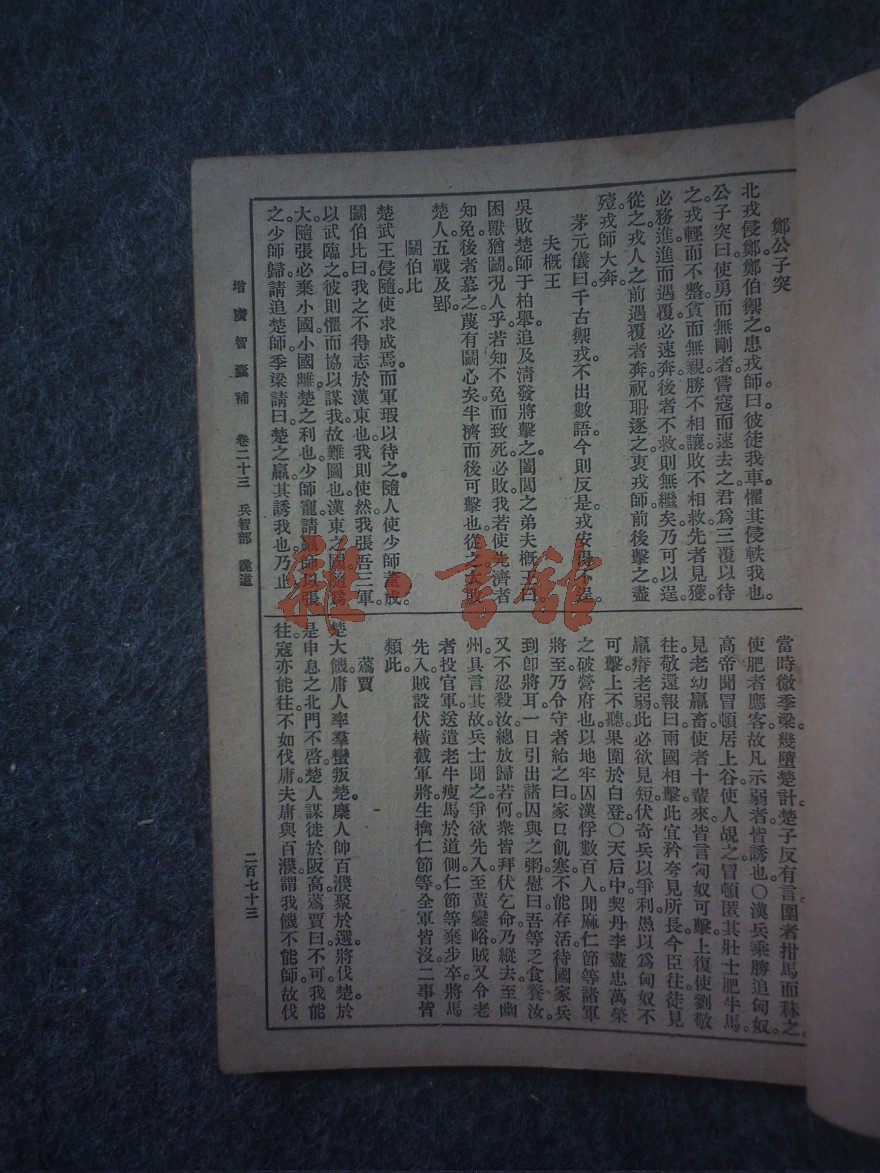 鄭公子突
北戎侵鄭鄭伯禦之患戎師曰彼徒我車懼其侵軼我也
公子突曰使勇而無剛者嘗寇而速去之君爲三覆以待
之戎輕而不整貪而無親勝不相讓敗不相救先者見獲
必務進進而遇覆必速奔後者不救則無繼矣乃可以逞
從之戎人之前遇覆者奔祝聃逐之衷戎師前後擊之盡
殪戎師大奔
茅元儀曰千古禦戎不出數語今則反是戎安得不逞
夫概王
吳敗楚師于柏舉追及清發將擊之闔閭之弟夫概王曰
困獸猶鬭況人乎若知不免而致死必敗我若使先濟者
知免後者慕之蔑有鬭心矣半濟而後可擊也從之大敗
楚人五戰及郢
鬭伯比
楚武王侵隨使求成焉而軍瑕以待之隨人使少師董成
鬭伯比曰我之不得志於漢東也我則使然我張吾三軍
以武臨之彼則懼而協以謀我故難圖也漢東之國隨爲
大隨張必棄小國小國離楚之利也少師寵請羸師以張
之少師歸請追楚師季梁請曰楚之羸其誘我也乃止
增廣智囊補 卷二十三 兵智部 詭道
當時微季梁幾墮楚計楚子反有言圍者拑馬而秣之
使肥者應客故凡示弱者皆誘也〇漢兵乘勝追匈奴
高帝聞冒頓居上谷使人覘之冒頓匿其壯士肥牛馬
見老幼羸畜使者十輩來皆言匈奴可擊上復使劉敬
往敬還報曰兩國相擊此宜矜夸見所長今臣往徒見
羸瘠老弱此必欲見短伏奇兵以爭利愚以爲匈奴不
可擊上不聽果圍於白登〇天后中契丹李盡忠萬榮
之破營府也以地牢囚漢俘數百人聞麻仁節等諸軍
將至乃令守者紿之曰家口飢寒不能存活待國家兵
到卽將耳一日引出諸囚與之粥慰曰吾等乏食養汝
又不忍殺汝總放歸若何衆皆拜伏乞命乃縱去至幽
州具言其故兵士聞之爭欲先入至黃麞峪賊又令老
者投官軍送遣老牛瘦馬於道側仁節等棄步卒將馬
先入賊設伏橫截軍將生擒仁節等全軍皆沒二事皆
類此
蔿賈
楚大饑庸人率羣蠻叛楚麇人帥百濮聚於選將伐楚於
是申息之北門不啓楚人謀徙於阪高蔿賈曰不可我能
往寇亦能往不如伐庸夫庸與百濮謂我饑不能師故伐
二百七十三
雜·書館